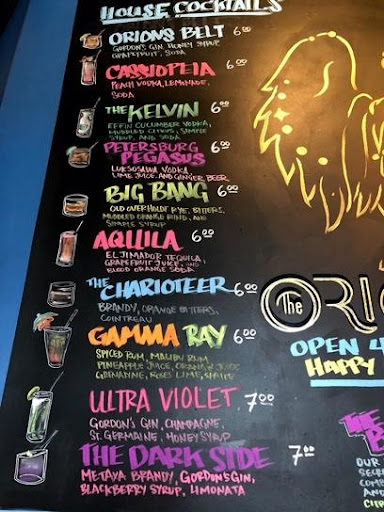 HOUSE COCKTAILS
ORIONS BELT 6.00
GORDON'S GIN, HONEY SYRUP
GRAPEFRUIT, SODA
CASSIOPEIA 6.00
PEACH VODKA, LEMONADE,
SODA
THE KELVIN 6.00
EFFIN CUCUMBER VODKA,
MUDDLED CITRUS, SIMPLE
SYRUP, AND SODA
PETERSBURG
PEGASUS 6.00
LUKSOSAWA VODKA
LIME JUICE, AND GINGER BEER
BIG BANG 6.00
OLD OVERHOLDT RYE, BITTERS,
MUDDLED ORANGE RIND, AND
SIMPLE SYRUP
AQUILA 6.00
EL JIMADOR TEQUILA,
GRAPEFRUIT JUICE, AND
BLOOD ORANGE SODA
THE CHARIOTEER 6.00
BRANDY, ORANGE BITTERS,
COINTREAU
GAMMA RAY 6.00
SPICED RUM, MALIBU RUM,
PINEAPPLE JUICE, ORANGE JUICE
GRENADINE, ROSES LIME,
ULTRA VIOLET 7.00
GORDON'S GIN, CHAMPAGNE,
ST. GERMAINE, HONEY SYRUP
THE DARK SIDE 7.00
METAXA BRANDY, GORDON'S GIN,
BLACKBERRY SYRUP, LIMONATA
The ORI
OPEN 4
HAPPY
THE
OUR
SECRE
COMB
AND
CITR